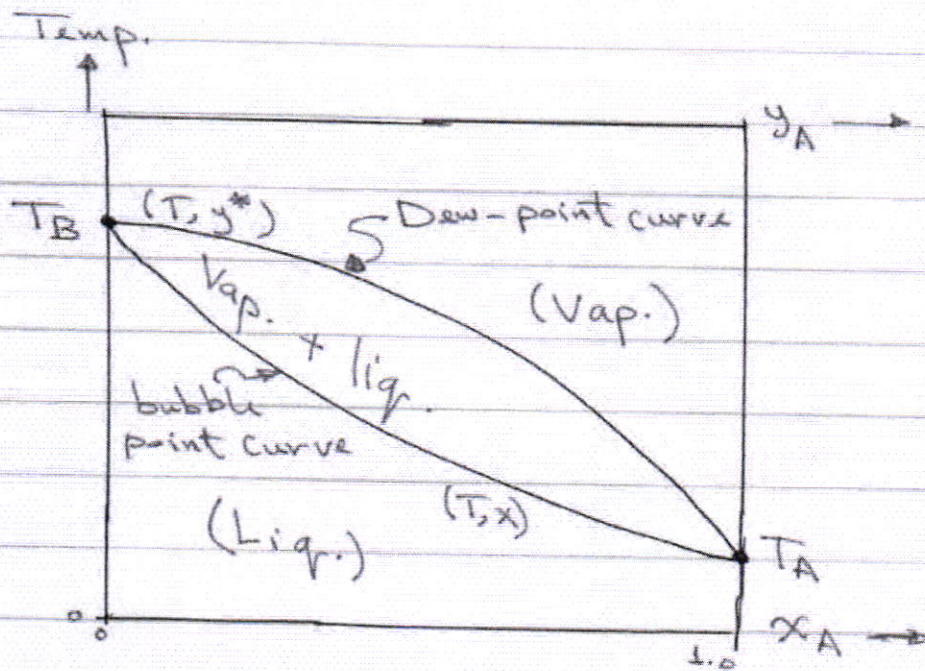 Temp.
y_A
T_B
(T, y*)
Dew-point curve
(Vap.)
Vap. + liq.
bubble
point curve
(T,x)
(Liq.)
T_A
0
0
1.0
x_A